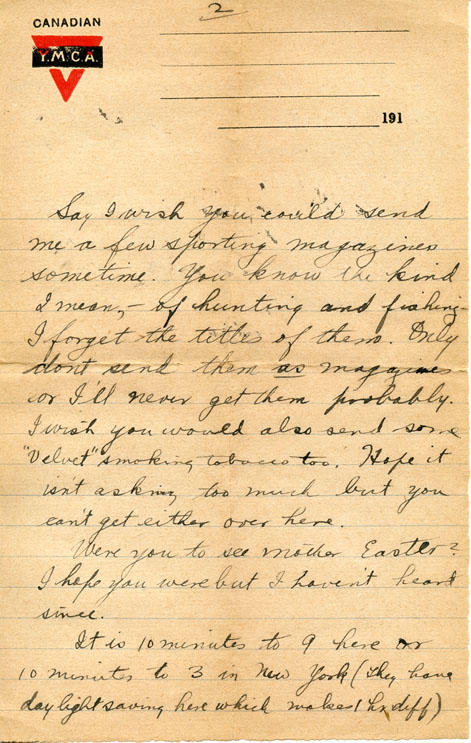 2
CANADIAN
Y.M.C.A.
191
Say I wish you could send
me a few sporting magazines
sometime. You know the kind
I mean, – of hunting and fishing –
I forget the titles of them. Only
dont send them as magazines
or I'll never get them probably.
I wish you would also send some
"Velvet" smoking tobacco too. Hope it
isn't asking too much but you
can't get either over here.
Were you to see mother Easter?
I hope you were but I haven't heard
since.
It is 10 minutes to 9 here or
10 minutes to 3 in New York (They have
daylight saving here which makes 1 hr diff)